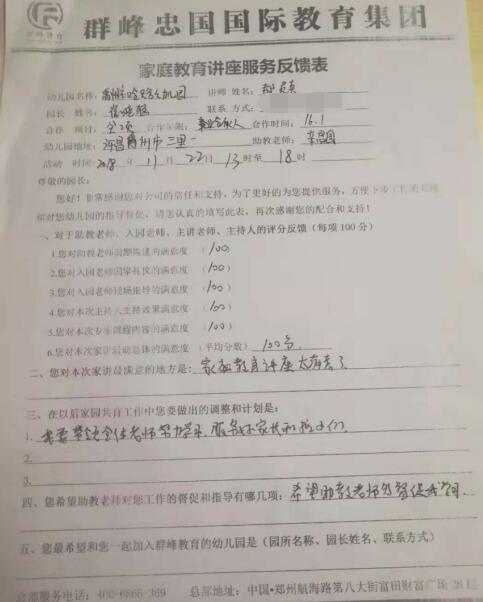 群峰忠国国际教育集团
家庭教育讲座服务反馈表
幼儿园名称: 讲师 姓名:
园长 姓名: 联系 方式:
合作 项目: 全项 合作年限: 事业合伙人 合作时间: 16.1
幼儿园地址: 许昌禹州市三里一 助教老师:
活动 时间: 2018 年 11 月 22 日 13 时至 18 时
尊敬的园长:
您好!非常感谢您对公司的信任和支持,为了更好的为您提供服务,方便下步工作的开展
和对您幼儿园的指导督促,请您认真的填写此表,再次感谢您的配合和支持!
一、对于助教老师、入园老师、主讲老师、主持人的评分反馈(每项 100 分)
1.您对助教老师前期沟通的满意度 (100)
2.您对入园老师园容礼仪的满意度 (100)
3.您对入园老师现场指导的满意度 (100)
4.您对本次主持人主持效果满意度 (100)
5.您对本次专家课程内容的满意度 (100)
6.您对本次家讲活动总体的满意度 (平均分数) 100分
二、您对本次家讲最满意的地方是: 家庭教育讲座太有意了
三、在以后家园共育工作中您要做出的调整和计划是:
1. 我要带领全体老师努力学习,服务好家长和孩子们
2.
3.
四、您希望助教老师对您工作的督促和指导有哪几项: 希望助教老师多督促我学习
五、您最希望和您一起加入群峰教育的幼儿园是(园所名称、园长姓名、联系方式)
总部服务电话: 400-6866-369 总部地址: 中国·郑州航海路第八大街富田财富广场 28 层